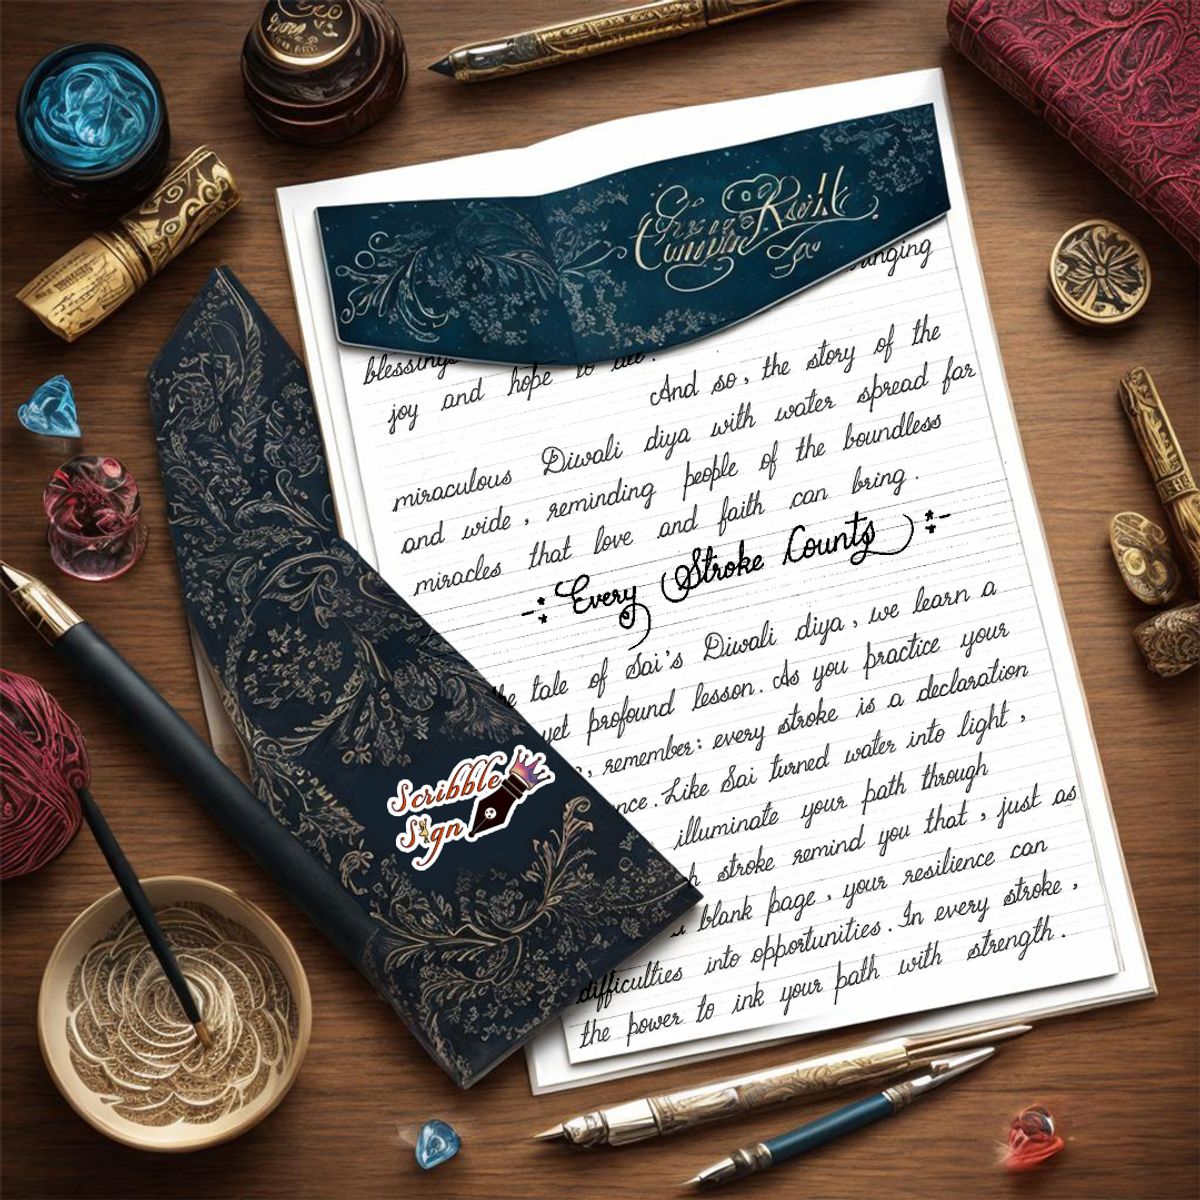 blessings
joy and hope to all.
And so, the story of the
miraculous Diwali diya with water spread far
and wide, reminding people of the boundless
miracles that love and faith can bring.
-:- Every Stroke Counts -:-
the tale of Sai's Diwali diya, we learn a
yet profound lesson. As you practice your
, remember: every stroke is a declaration
. Like Sai turned water into light,
illuminate your path through
stroke remind you that, just as
blank page, your resilience can
difficulties into opportunities. In every stroke,
the power to ink your path with strength.
Scribble
Sign